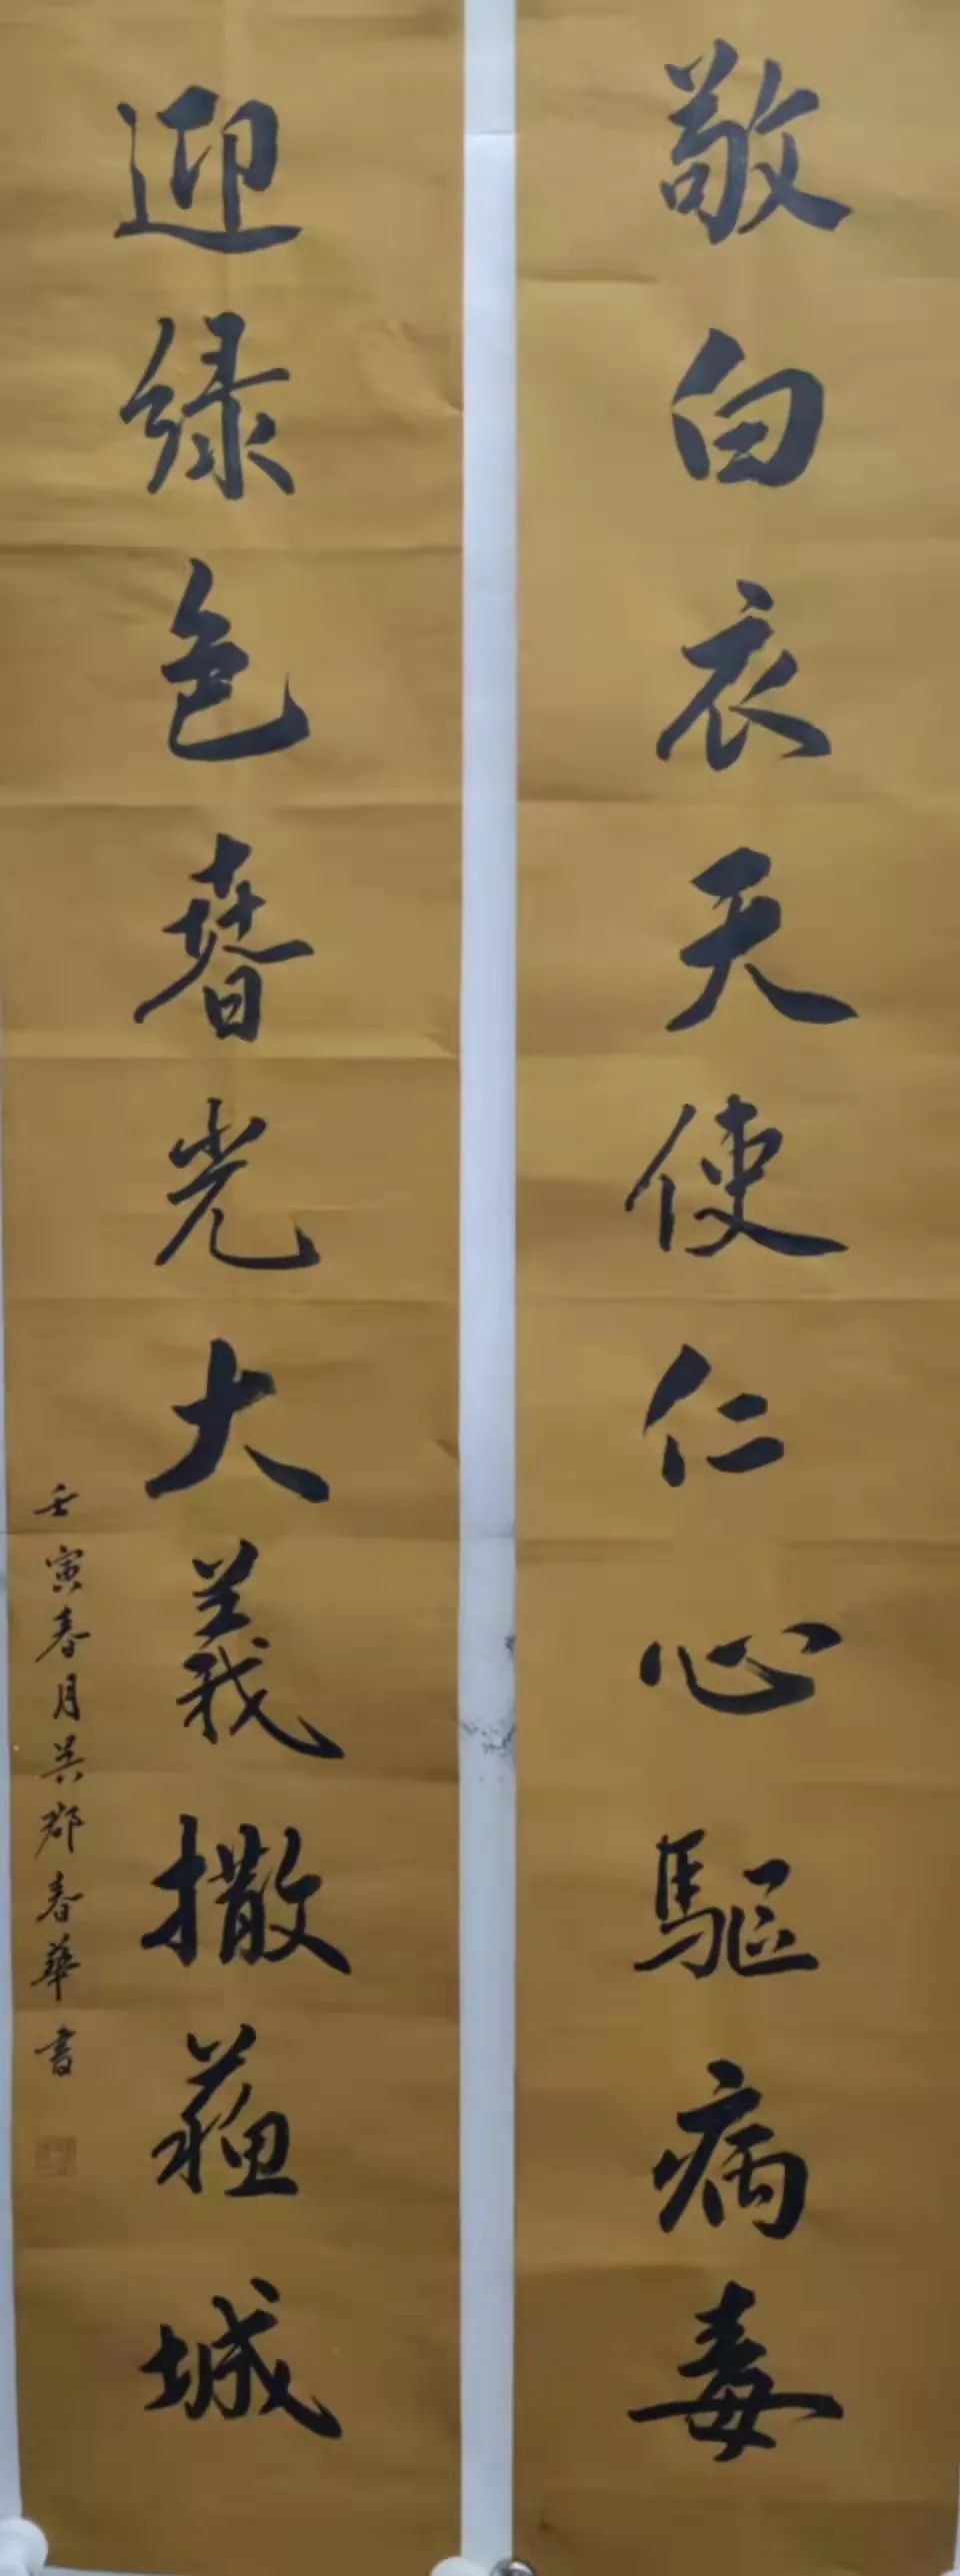 敬白衣天使仁心驅病毒
迎绿色春光大義撒蘓城
壬寅春月吴郡春華書